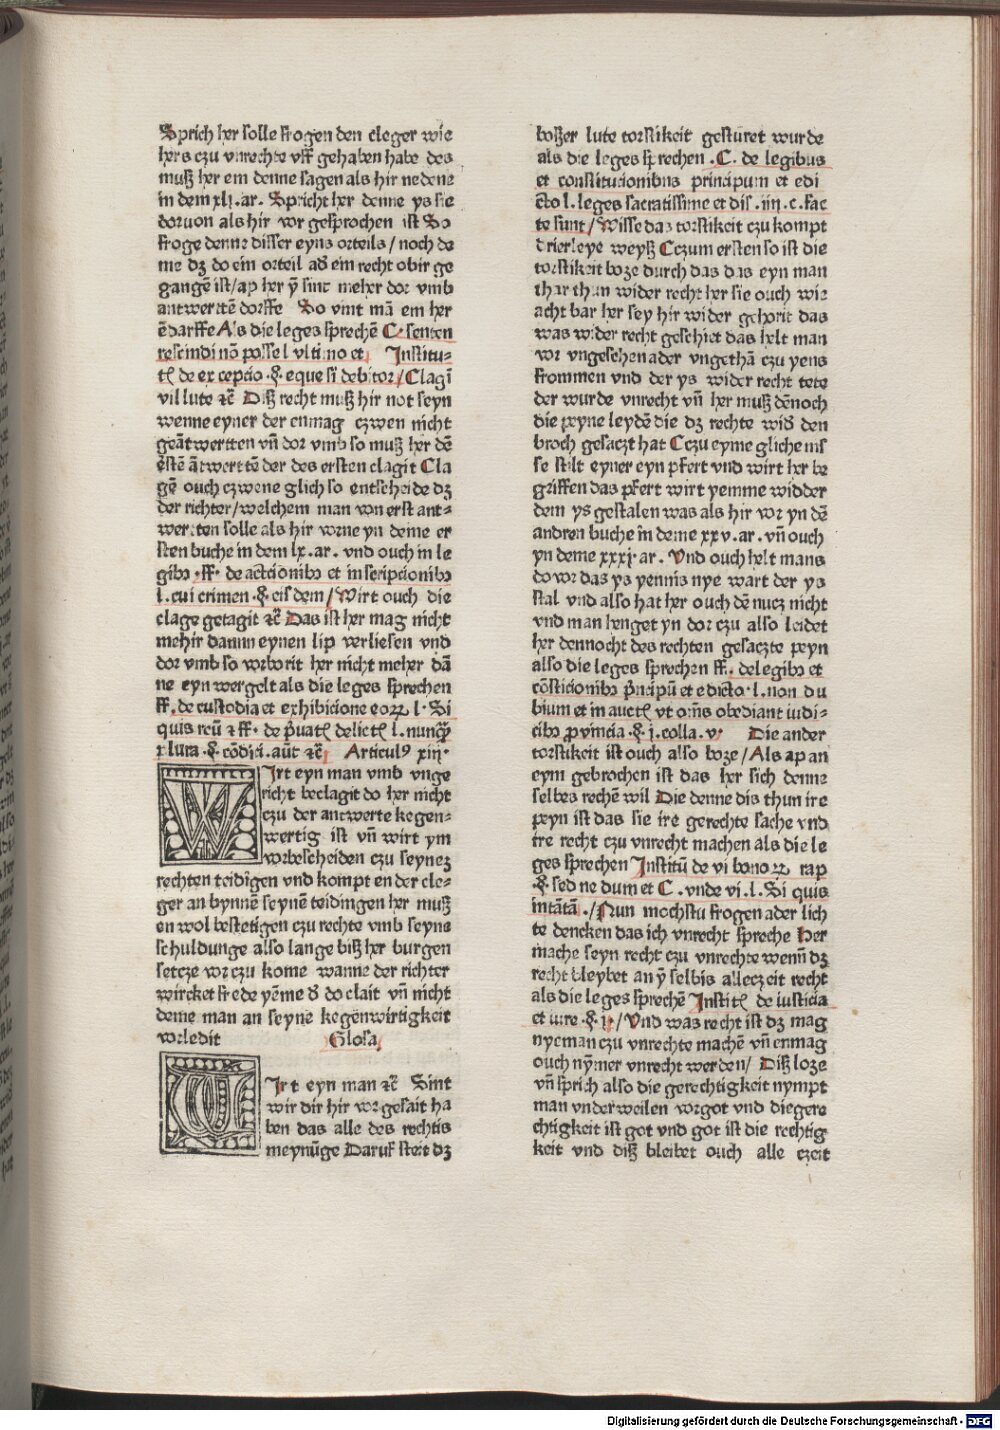 Sprich her solle frogen den cleger wie
hers czu vnrechte vff gehaben habe des
muß her em denne sagen als hir nedene
in dem xlj.ar. Spricht her denne ys sie
doruon als hir vor gesprochen ist So
froge denne disser eyns orteils / noch de
me dz do ein orteil ad' em recht obir ge
gangē ist/ap her ÿ sint meher dor vmb
antwerttē dorffe So vint mā em her
ēdarffe Als die leges sprechē C. senten
rescindi nō posse l vltimo et Institu-
tꝭ de excepcio .§. eque si debitor/Clagī
vil lute ⁊c̄ Diß recht muß hir not seyn
wenne eyner der enmag czwen nicht
geātwertten vn̄ dor vmb so muß her dē
estē ātwerttē der des ersten clagit Cla
gē ouch czwene glich so entscheide dz
der richter/welchem man von erst ant-
wertten solle als hir vorne yn deme er
sten buche in dem lx.ar. vnd ouch in le
gibꝫ .ff. de acccionibꝫ et inscripcionibꝫ
l. cui crimen .§. eisdem/Wirt ouch die
clage getagit ⁊c̄ Das ist her mag nicht
mehir dannn eynen lip verliesen vnd
dor vmb so vorborit her nicht meher dā
ne eyn wergelt als die leges sprechen
ff. de custodia et exhibicione eoꝝ l. Si
quis reū ⁊ ff. de p̄uatꝭ delictꝭ l. nunqꝫ
plura .§. cōdici. aūt ⁊c̄ Articulꝰ xiij.
Wirt eyn man vmb vnge
richt beclagit do her nicht
czu der antwerte kegen-
wertig ist vn̄ wirt ym
vorbescheiden czu seynez
rechten teidīgen vnd kompt en der cle-
ger an bynnē seynē teidingen her muß
en wol bestetigen czu rechte vmb seyne
schuldunge also lange biß her burgen
setcze vor czu kome wanne der richter
wircket frede yēme d' do clait vn̄ nicht
deme man an seyne kegēnwirtigkeit
vorledit Glosa
Wirt eyn man ⁊c̄ Sint
wir dir hir vor gesait ha
ben das alle des rechtis
meynūge Daruf steit dz
boßer lute torstikeit gesturet wurde
als die leges sprechen .C. de legibus
et constitucionibus principum et edi
cto l. leges sacratissime et dis .iiij.c. fac
te sunt/Wisse das torstikeit czu kompt
drierleye weyß Czum ersten so ist die
torstikeit boze durch das das eyn man
thar thun wider recht her sie ouch wie
acht bar her sey hir wider gehorit das
was wider recht geschiet das helt man
vor vngesehen ader vngethā czu yens
frommen vnd der ys wider recht tete
der wurde vnrecht vn̄ her muß dēnoch
die peyne leydē die dz rechte wid' den
broch gesaczt hat Czu eyme glichenis
se stilt eyner eyn pfert vnd wirt her be
griffen das pfert wirt yemme widder
dem ys gestalen was als hir vor yn dē
andren buche in deme xxv.ar. vn̄ ouch
yn deme xxxj.ar. Vnd ouch helt mans
do vor das ys yennis nye wart der ys
stal vnd also hat her ouch dē nucz nicht
vnd man henget yn dor czu also leidet
her dennocht des rechten gesaczte peyn
also die leges sprechen ff. de legibꝫ et
cōsticionibꝫ p̄ncipū et edicto. l. non du
bium et in auctꝭ vt om̄s obediant iudi-
cibꝫ ꝓvincia .§. j. colla. v. Die ander
torstikeit ist ouch also boze/Als ap an
eym gebrochen ist das her sich denne
selbes rechē wil Die denne dis thun ire
peyn ist das sie ire gerechte sache vnd
ire recht czu vnrecht machen als die le
ges sprechen Institū de vi bonoꝝ rap
.§. sed ne dum et C. vnde vi. l. Si quis
intātā ./Nun mochstu frogen ader lich
te dencken das ich vnrecht spreche Her
mache seyn recht czu vnrechte wenn̄ dz
recht bleybet an ÿ selbis alleczeit recht
als die leges sprechē Institꝭ de iusticia
et iure .§. j./Vnd was recht ist dz mag
nyeman czu vnrechte machē vn̄ enmag
ouch nȳmer vnrecht werden/ Diß loze
vn̄ sprich also die gerechtigkeit nympt
man vnderweilen vor got vnd die gere
chtigkeit ist got vnd got ist die rechtig
keit vnd diß bleibet ouch alle czeit
Digitalisierung gefördert durch die Deutsche Forschungsgemeinschaft - DFG